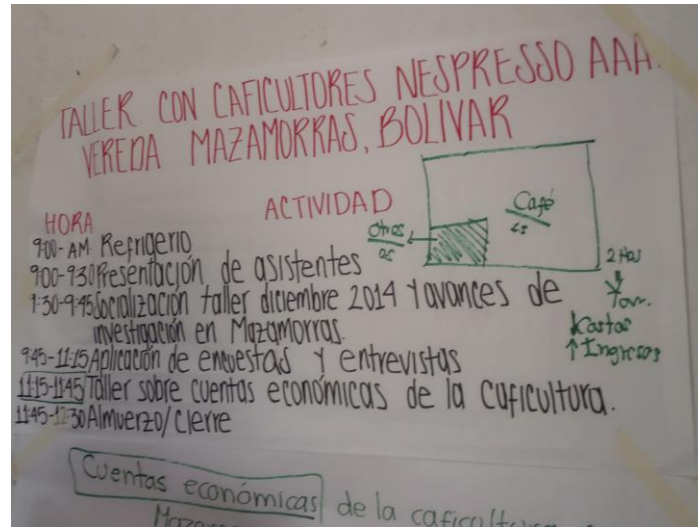 TALLER CON CAFICULTORES NESPRESSO AAA.
VEREDA MAZAMORRAS, BOLIVAR
HORA ACTIVIDAD
9:00-AM Refrigerio
9:00-9:30 Presentación de asistentes
9:30-9:45 Socialización taller diciembre 2014 y avances de
investigación en Mazamorras.
9:45-11:15 Aplicación de encuestas y entrevistas
11:15-11:45 Taller sobre cuentas económicas de la caficultura.
11:45-12:30 Almuerzo/cierre
Café
Otros
2 Has
↑ Ingresos
Cuentas económicas de la caficultura